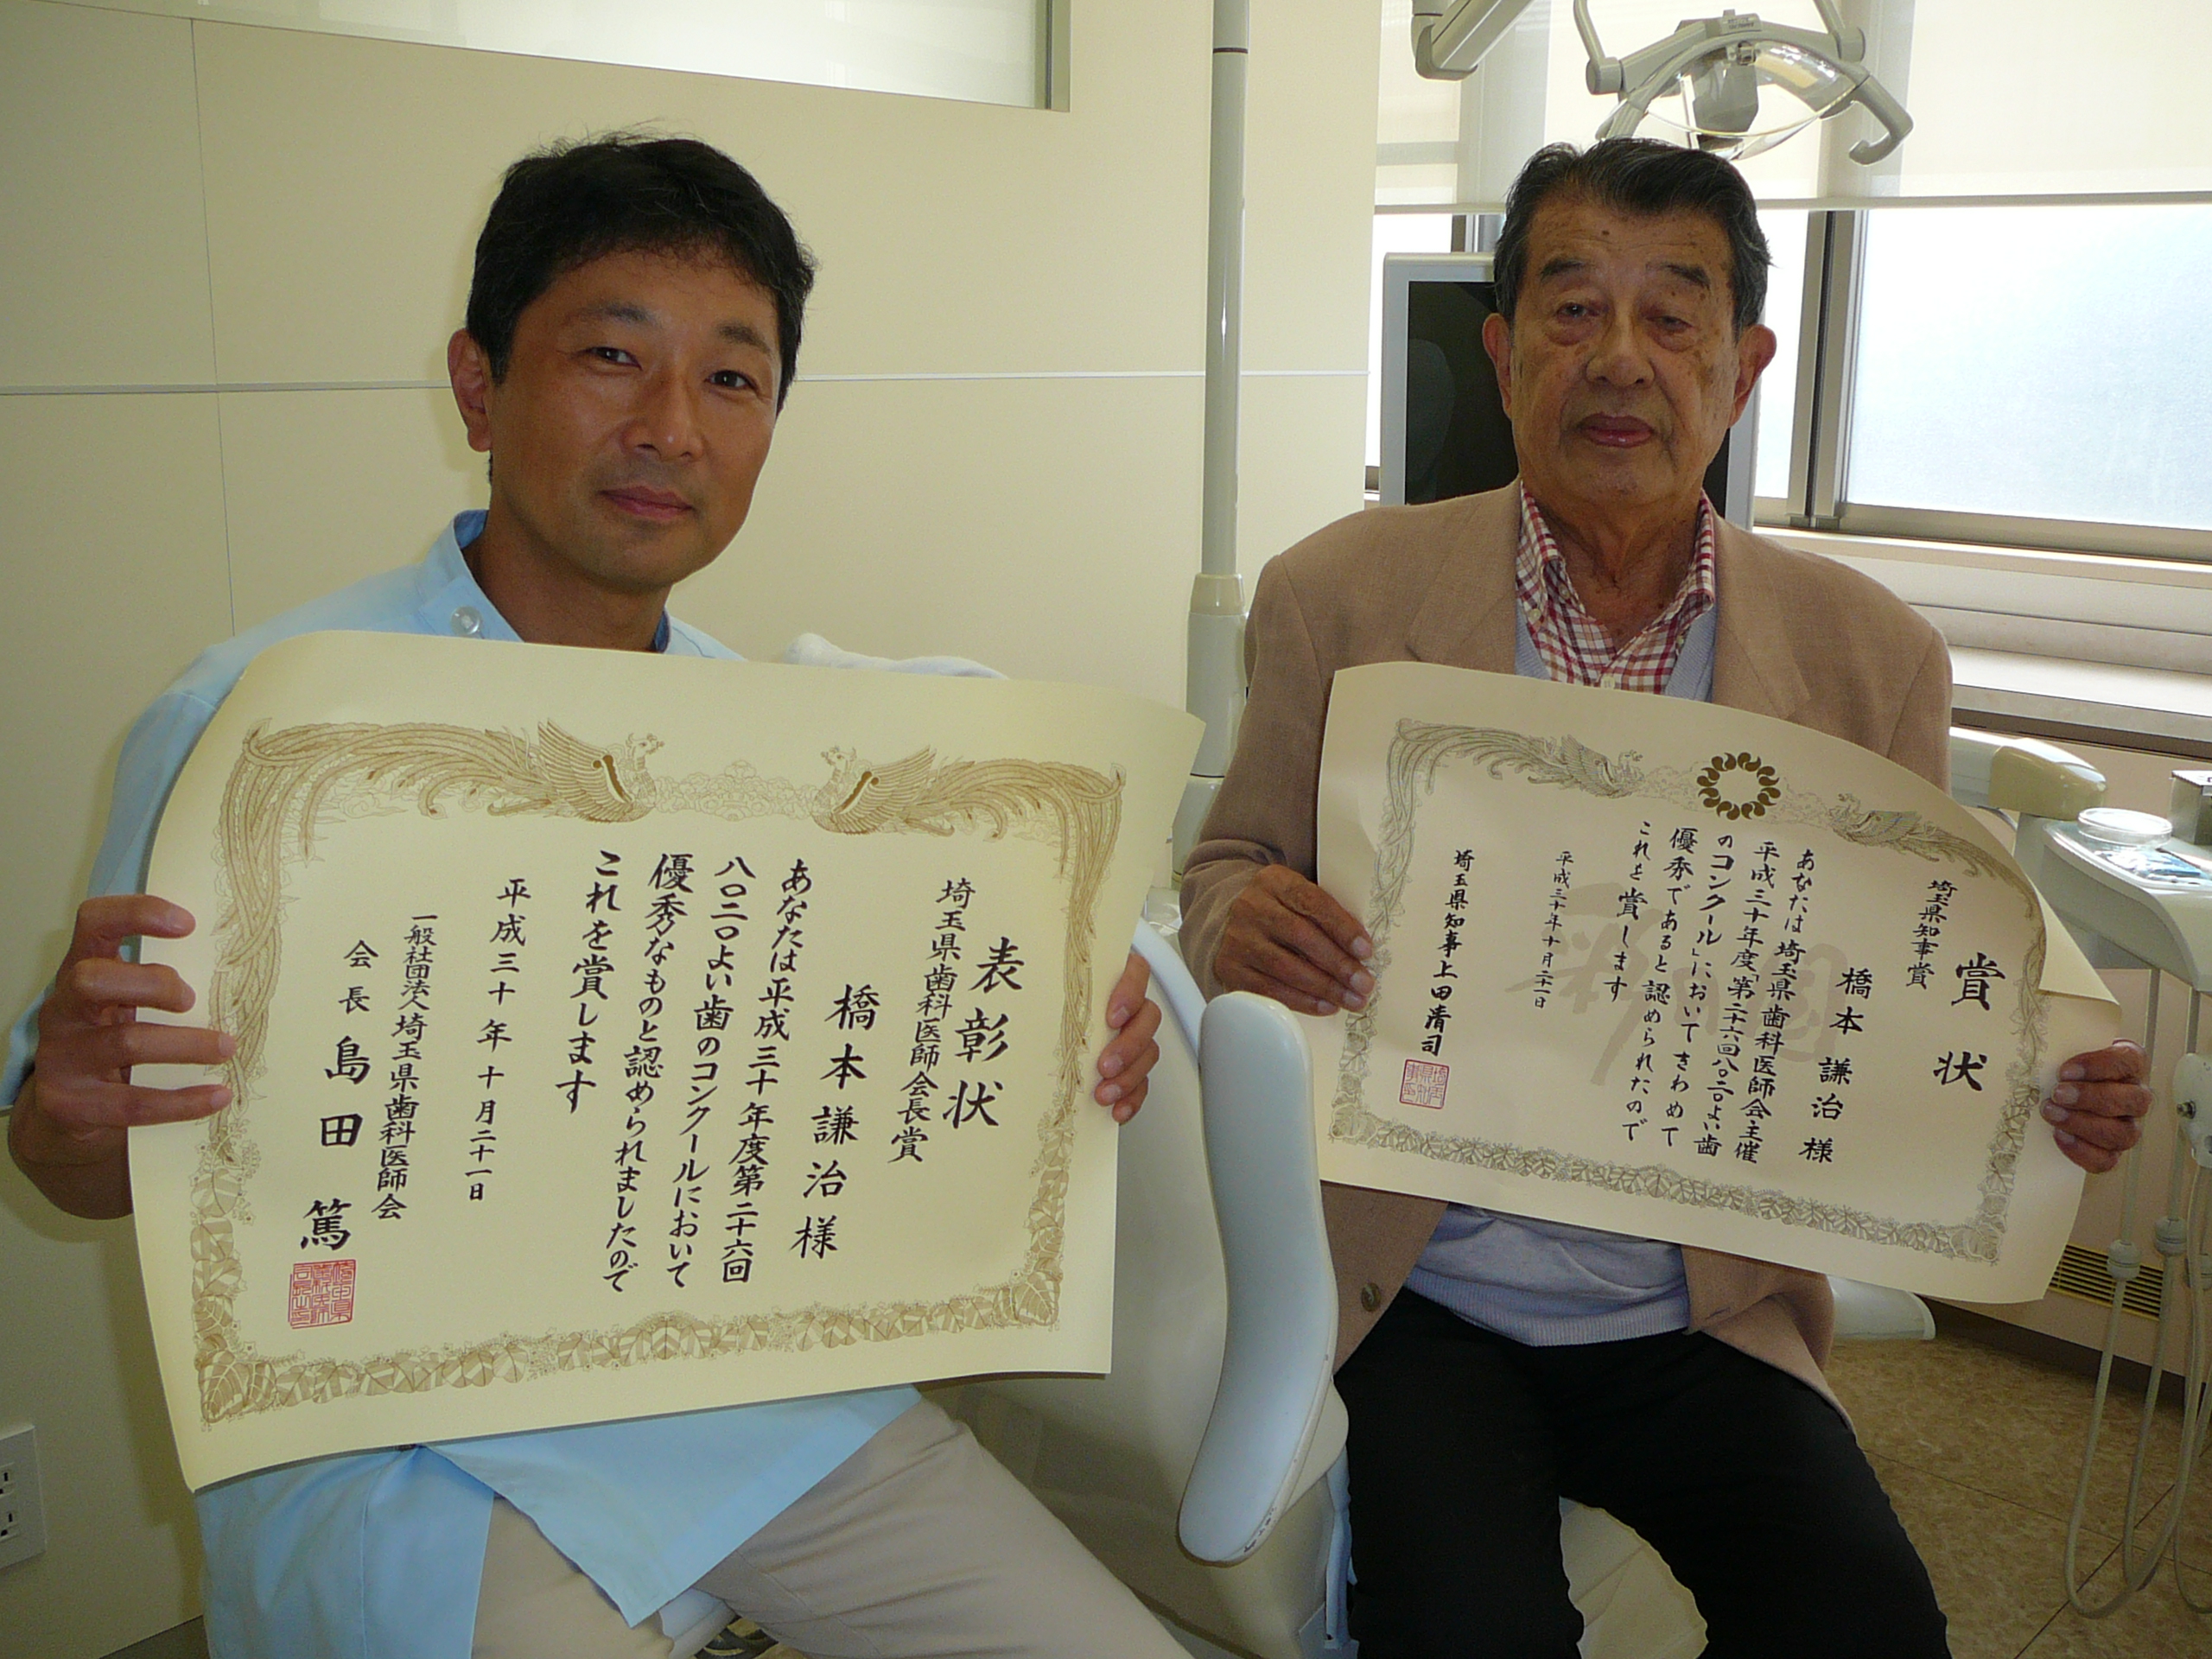 表彰状
埼玉県歯科医師会長賞
橋本謙治様
あなたは平成三十年度第二十六回
八〇二〇よい歯のコンクールにおいて
優秀なものと認められましたので
これを賞します
平成三十年十月二十一日
一般社団法人埼玉県歯科医師会
会長島田篤
賞状
埼玉県知事賞
橋本謙治様
あなたは埼玉県歯科医師会主催
平成三十年度「第二十六回八〇二〇よい歯
のコンクール」においてきわめて
優秀であると認められたので
これを賞します
平成三十年十月二十一日
埼玉県知事上田清司